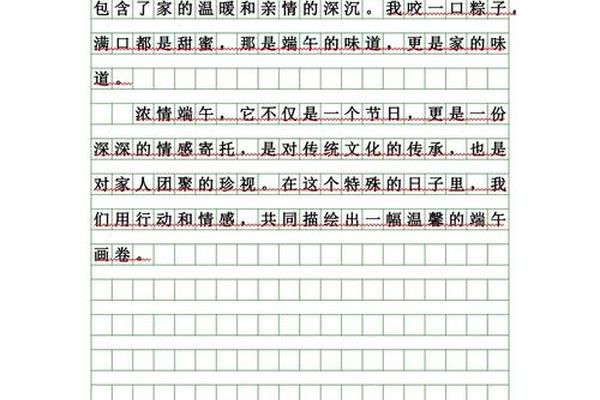 包含了家的温暖和亲情的深沉。我咬一口粽子，
满口都是甜蜜，那是端午的味道，更是家的味
道。
浓情端午，它不仅是一个节日，更是一份
深深的情感寄托，是对传统文化的传承，也是
对家人团聚的珍视。在这个特殊的日子里，我
们用行动和情感，共同描绘出一幅温馨的端午
画卷。